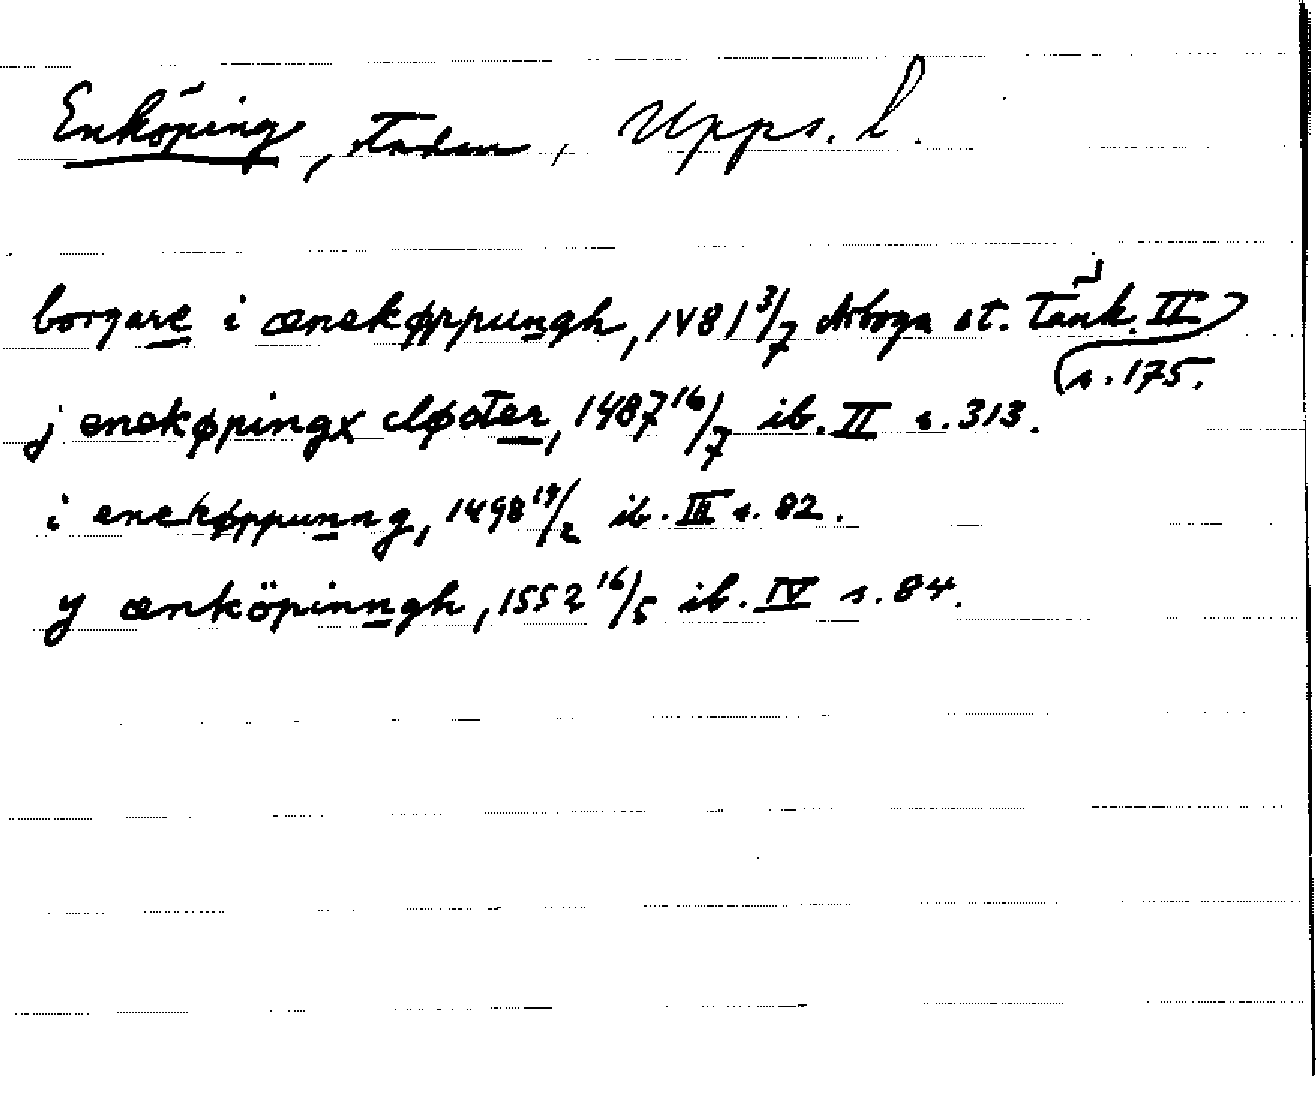 Enköping, staden, Upps. l.
borgare i ænekøppungh, 1481 3/7 Arboga st. Tänk. II
s. 175.
j enekøpingx cløster, 1487 16/7 ib. II s. 313.
i enekøppunng, 1498 17/2 ib. III s. 82.
y ænköpinngh, 1552 16/5 ib. IV s. 84.